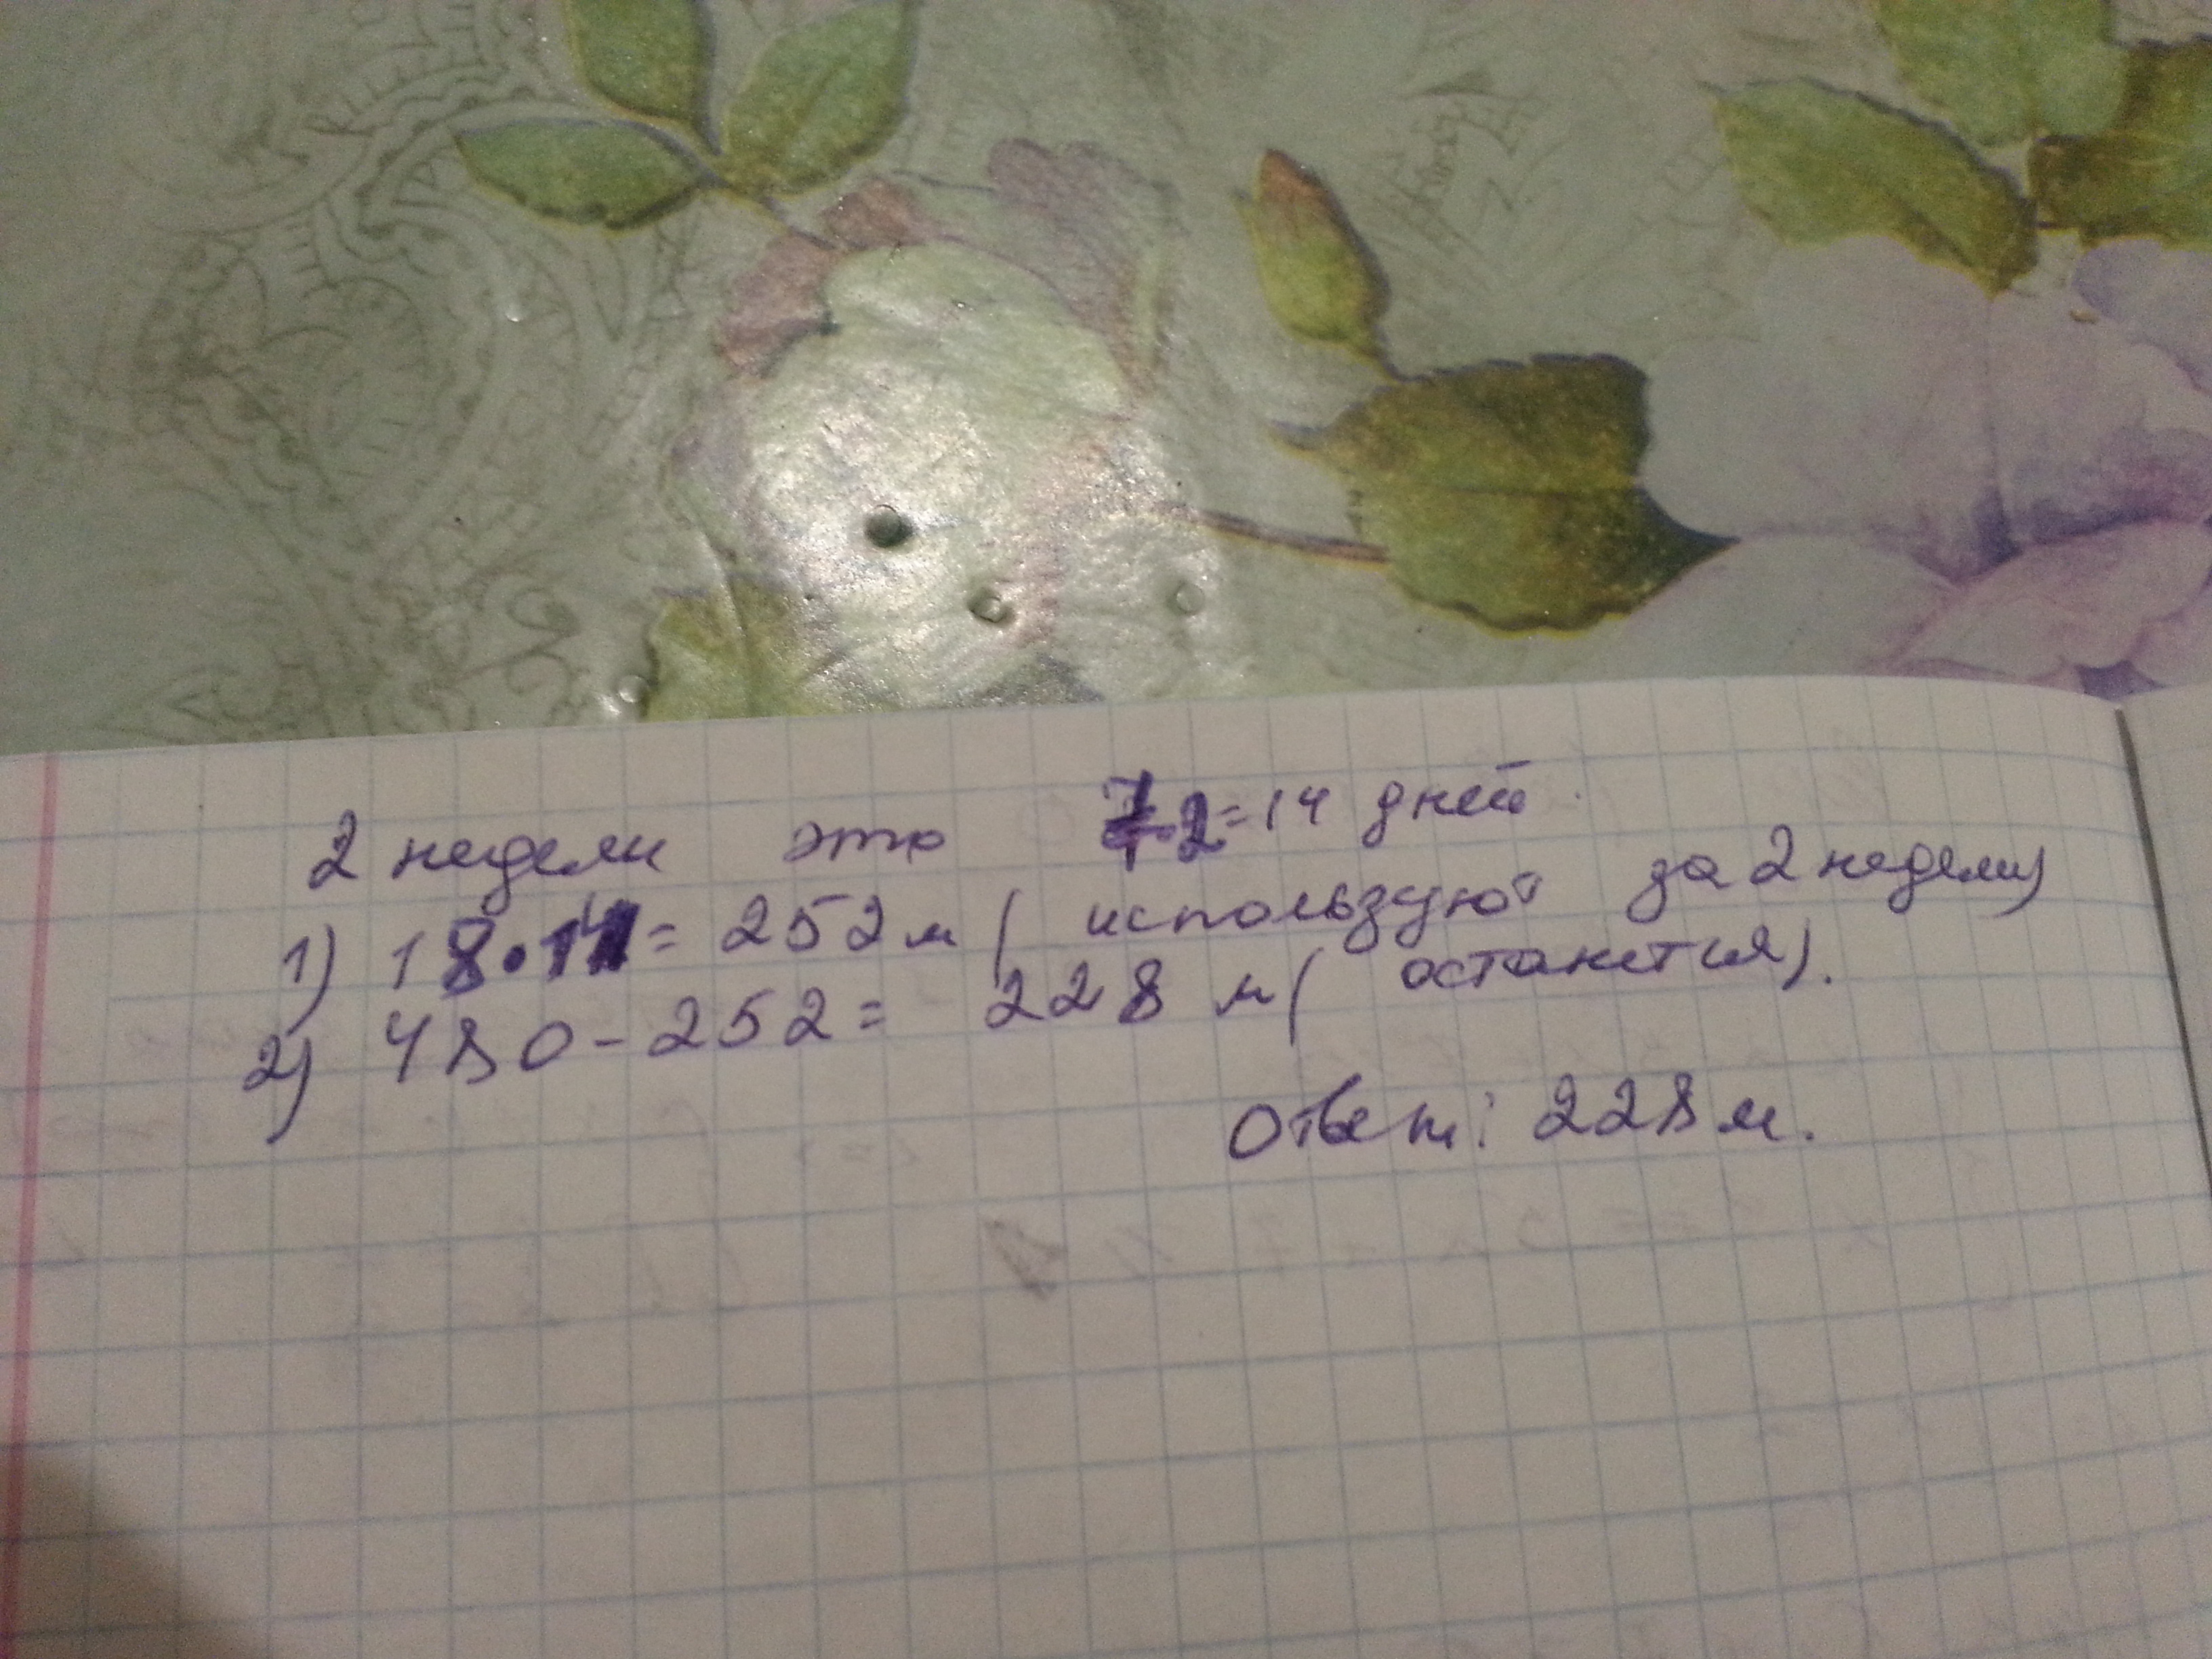 2 недели это 7·2=14 дней.
1) 18·14= 252 м ( используют за 2 недели)
2) 480-252= 228 м ( останется).
Ответ: 228 м.